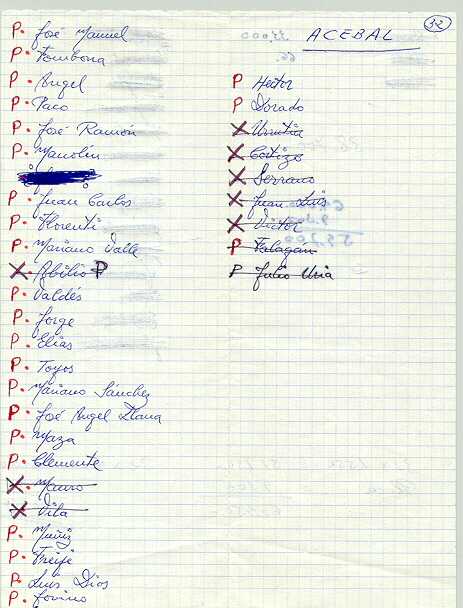 32
ACEBAL
P. José Manuel
P. Tombona
P. Angel
P. Paco
P. José Ramón
P. Manolín
P. Juan Carlos
P. Florenti
P. Mariano Valle
X. Abilio P
P. Valdés
P. Jorge
P. Elías
P. Toyos
P. Mariano Sánchez
P. José Angel Llana
P. Maza
P. Clemente
X. Mauro
X. Vila
P. Muñiz
P. Freije
P. Luis Dios
P. Jovino
P Hector
P Dorado
X Urrutia
X Cortizo
X Serrano
X Juan Luis
X Victor
P Falagán
P Julio Uria